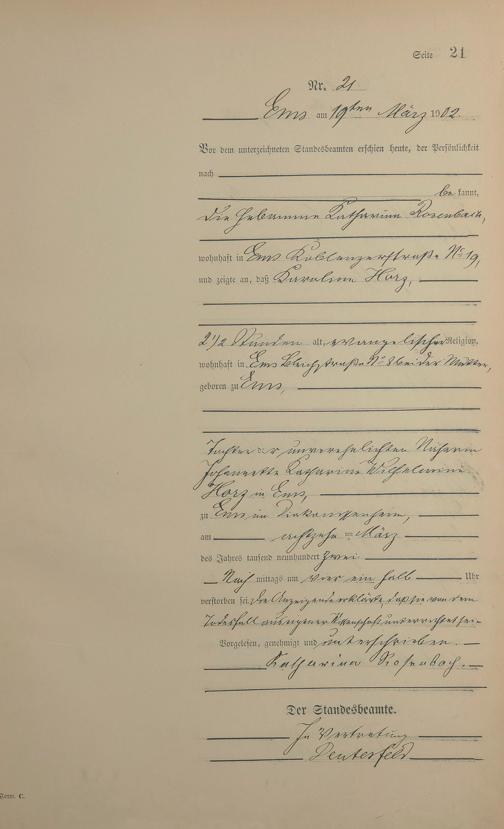 Seite 21
Nr. 21
Ems am 19ten März 1902.
Vor dem unterzeichneten Standesbeamten erschien heute, der Persönlichkeit
nach
bekannt,
die Hebamme Katharina Rosenbach,
wohnhaft in Ems Koblenzerstraße No 19,
und zeigte an, daß Karoline Horz,
2 1/2 Stunden alt, evangelischer Religion,
wohnhaft in Ems Bleichstraße No 8 bei der Mutter,
geboren zu Ems,
Tochter der unverehelichten Näherin
Johannette Katharine Wilhelmine
Horz in Ems,
zu Ems im Diakonissenheim,
am achtzehn = März
des Jahres tausend neunhundert zwei
Nachmittags um vier ein halb Uhr
verstorben sei, die Anzeigende erklärte, daß sie von dem
Todesfall aus eigener Wissenschaft unterrichtet sei.
Vorgelesen, genehmigt und unterschrieben.
Katharina Rosenbach.
Der Standesbeamte.
In Vertretung
Form. C.